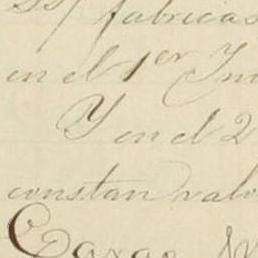 fabricas
en el 1er In
Y en el 2
constan valo